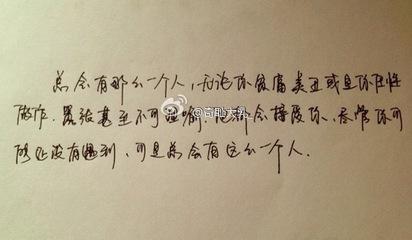 总会有那么一个人,无论你贫富美丑或是你任性
做作.嚣张甚至不可理喻.他都会接受你.尽管你可
能还没有遇到,可是总会有这么一个人.
@奇葩大